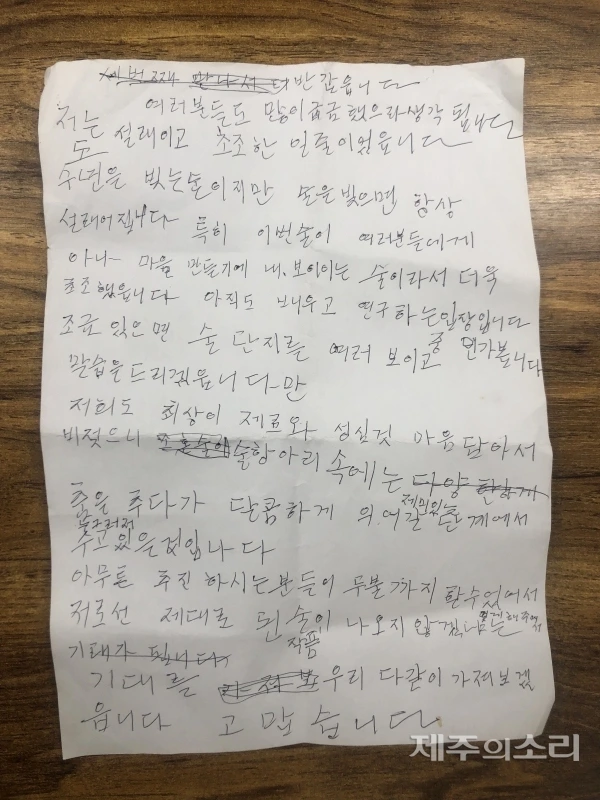 이번째 만나서 더 반갑읍니다
저는 여러분들도 많이 궁금했으라 생각 됩니다
도 설래이고 초조한 일줄이었읍니다
수년을 빚는술이지만 술을빚으면 항상
설래어집니다 특히 이번술이 여러분들에게
아니 마을 만들기에 내.보이이는 술이라서 더욱
초조했읍니다 아직도 배우고 연구하는입장입니다
조금 있으면 술 단지를 여러 보이고 중 인가봅니다
말씀을드리겠읍니다-만
저희도 최상이 제료와 성실것 마음 담아서
비젖으니 술항아리 속에는 다양
춤을 추다가 달콤하게 의.여갈 재미있는 단계에서
추고있을것입니다
아무튼 추진 하시는분들이 두불가지 할수있어서
저로선 제대로 된 술이 나오지 않겠나는
작품
기대가 됩니다
기대를 우리 다같이 가져보겠
읍니다 고맙습니다
제주의소리